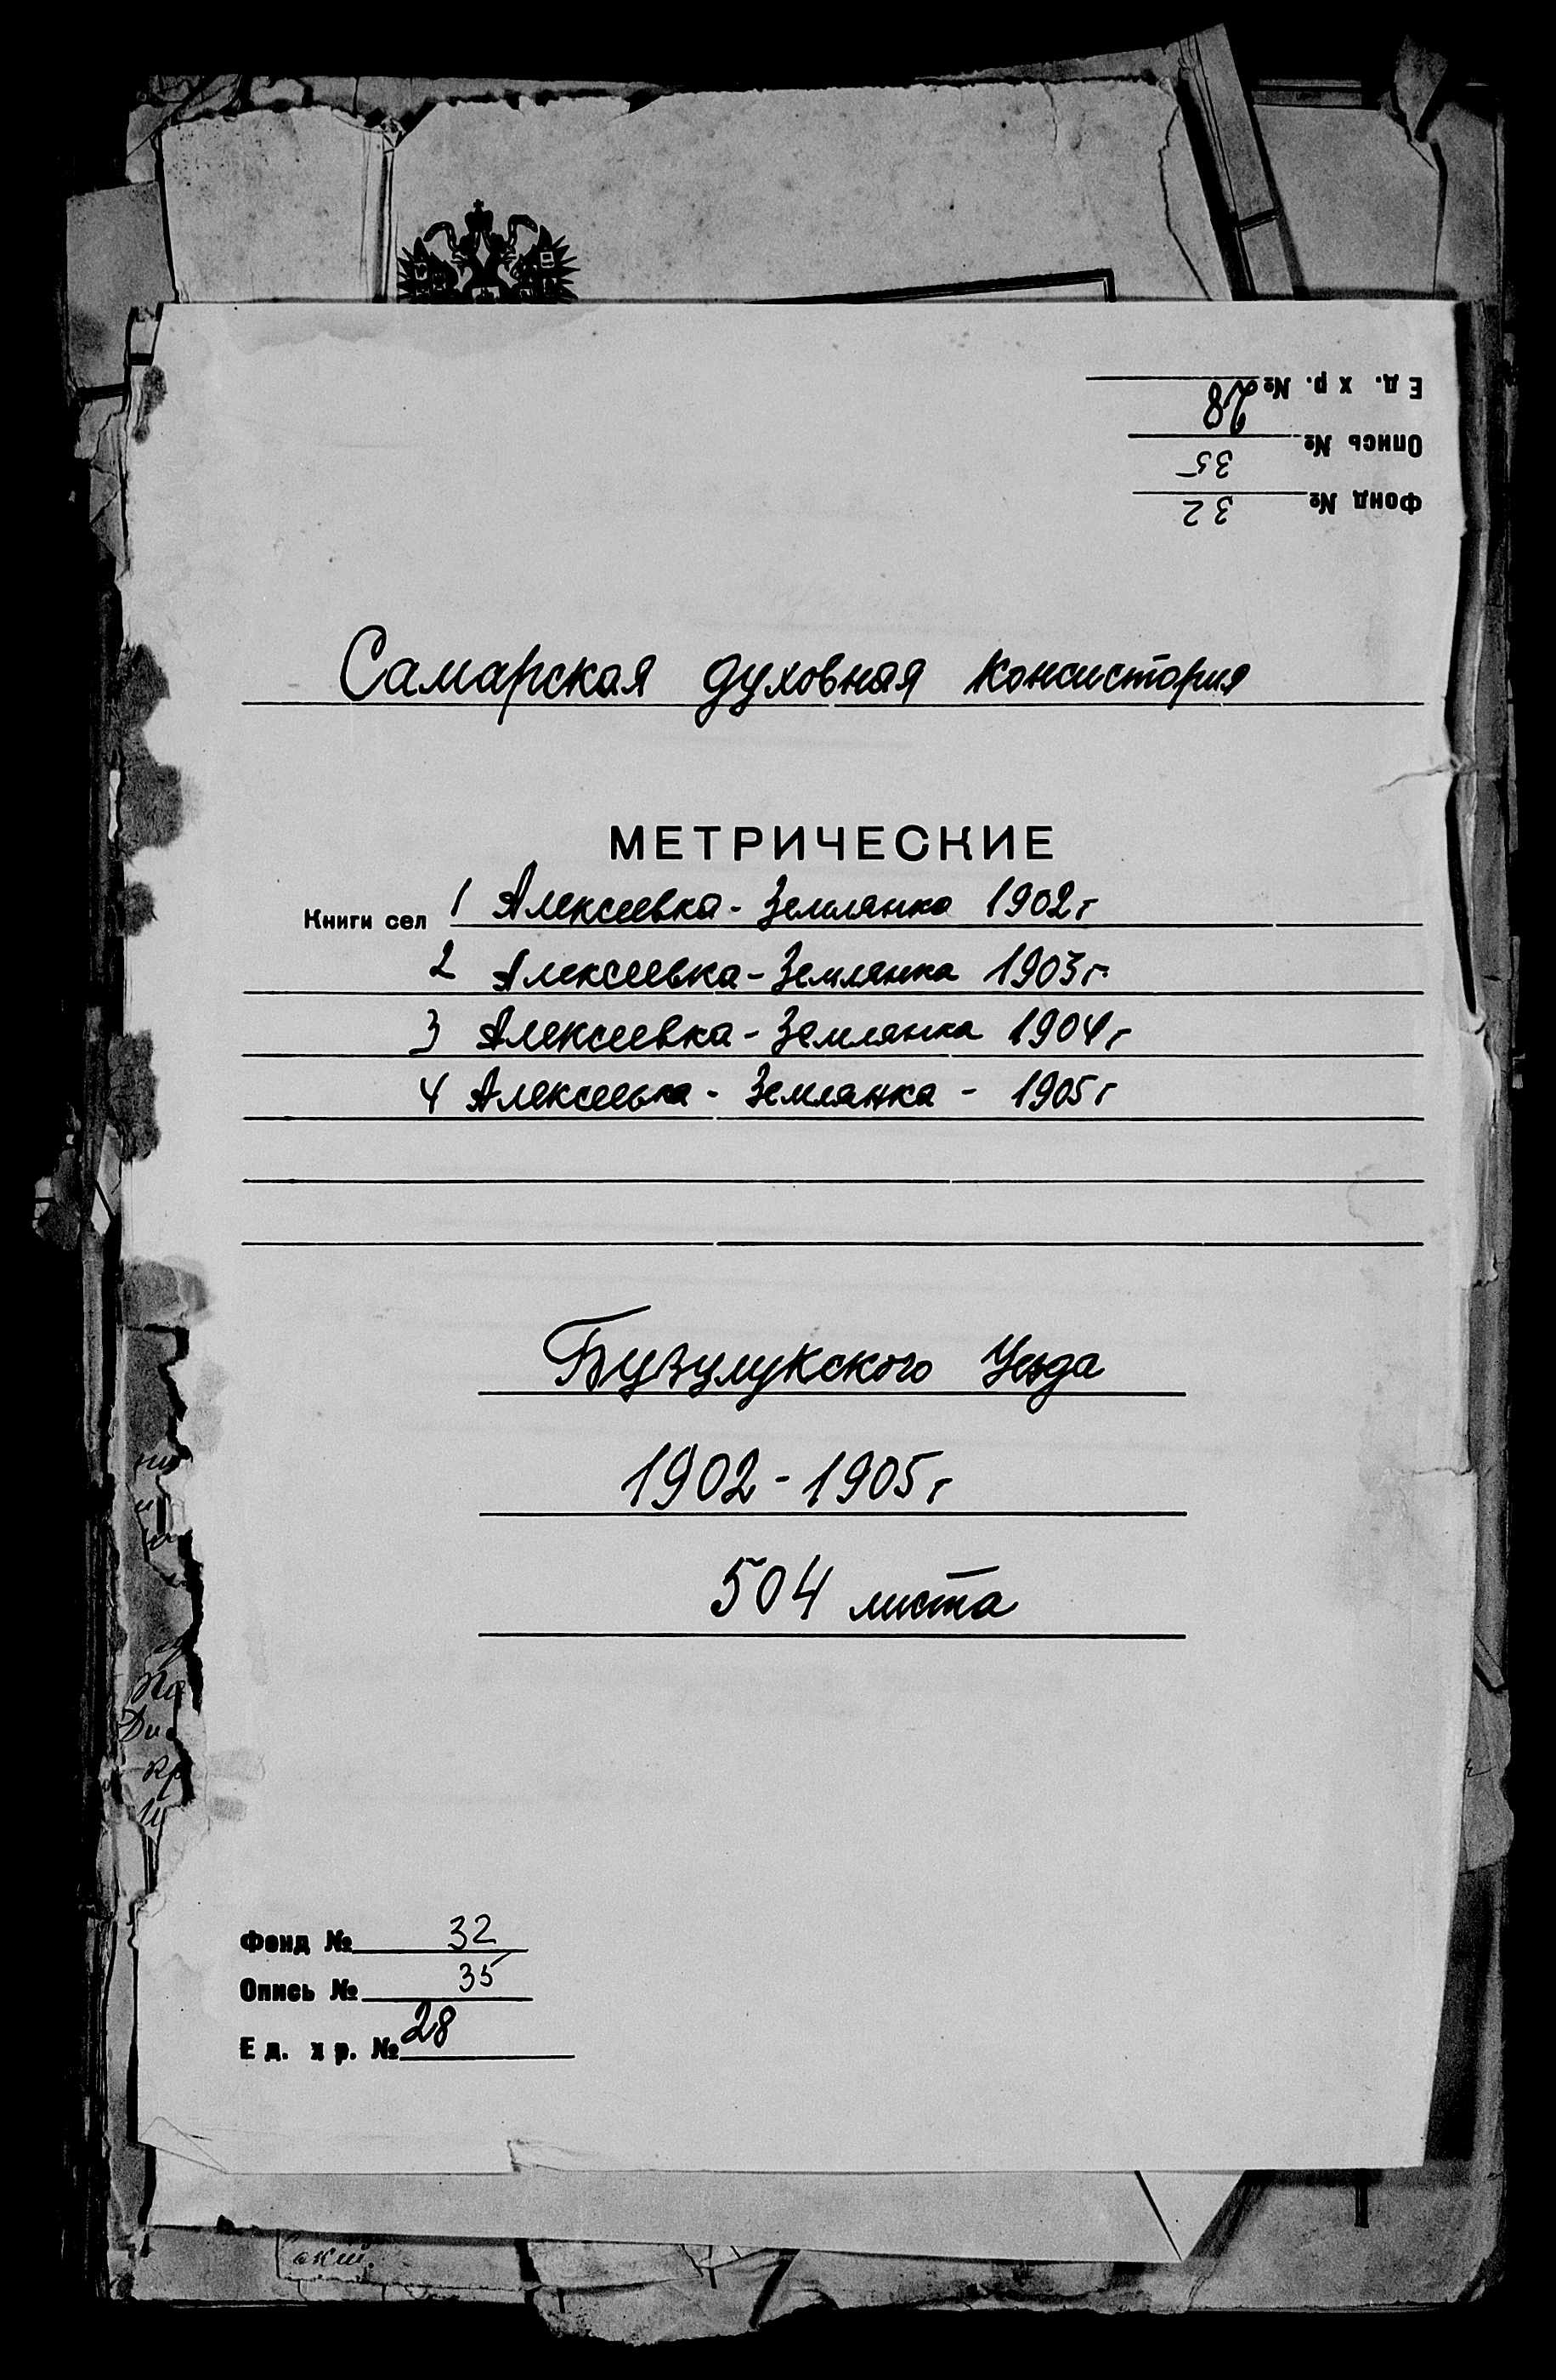 Ед. хр. № 28
Опись № 35
Фонд № 32
Самарская духовная консистория
МЕТРИЧЕСКИЕ
Книги сел 1 Алексеевка - Землянка 1902 г
2 Алексеевка - Землянка 1903 г.
3 Алексеевка - Землянка 1904 г
4 Алексеевка - Землянка - 1905 г
Бузулукского Уезда
1902 - 1905 г
504 листа
Фонд № 32
Опись № 35
Ед. хр. № 28